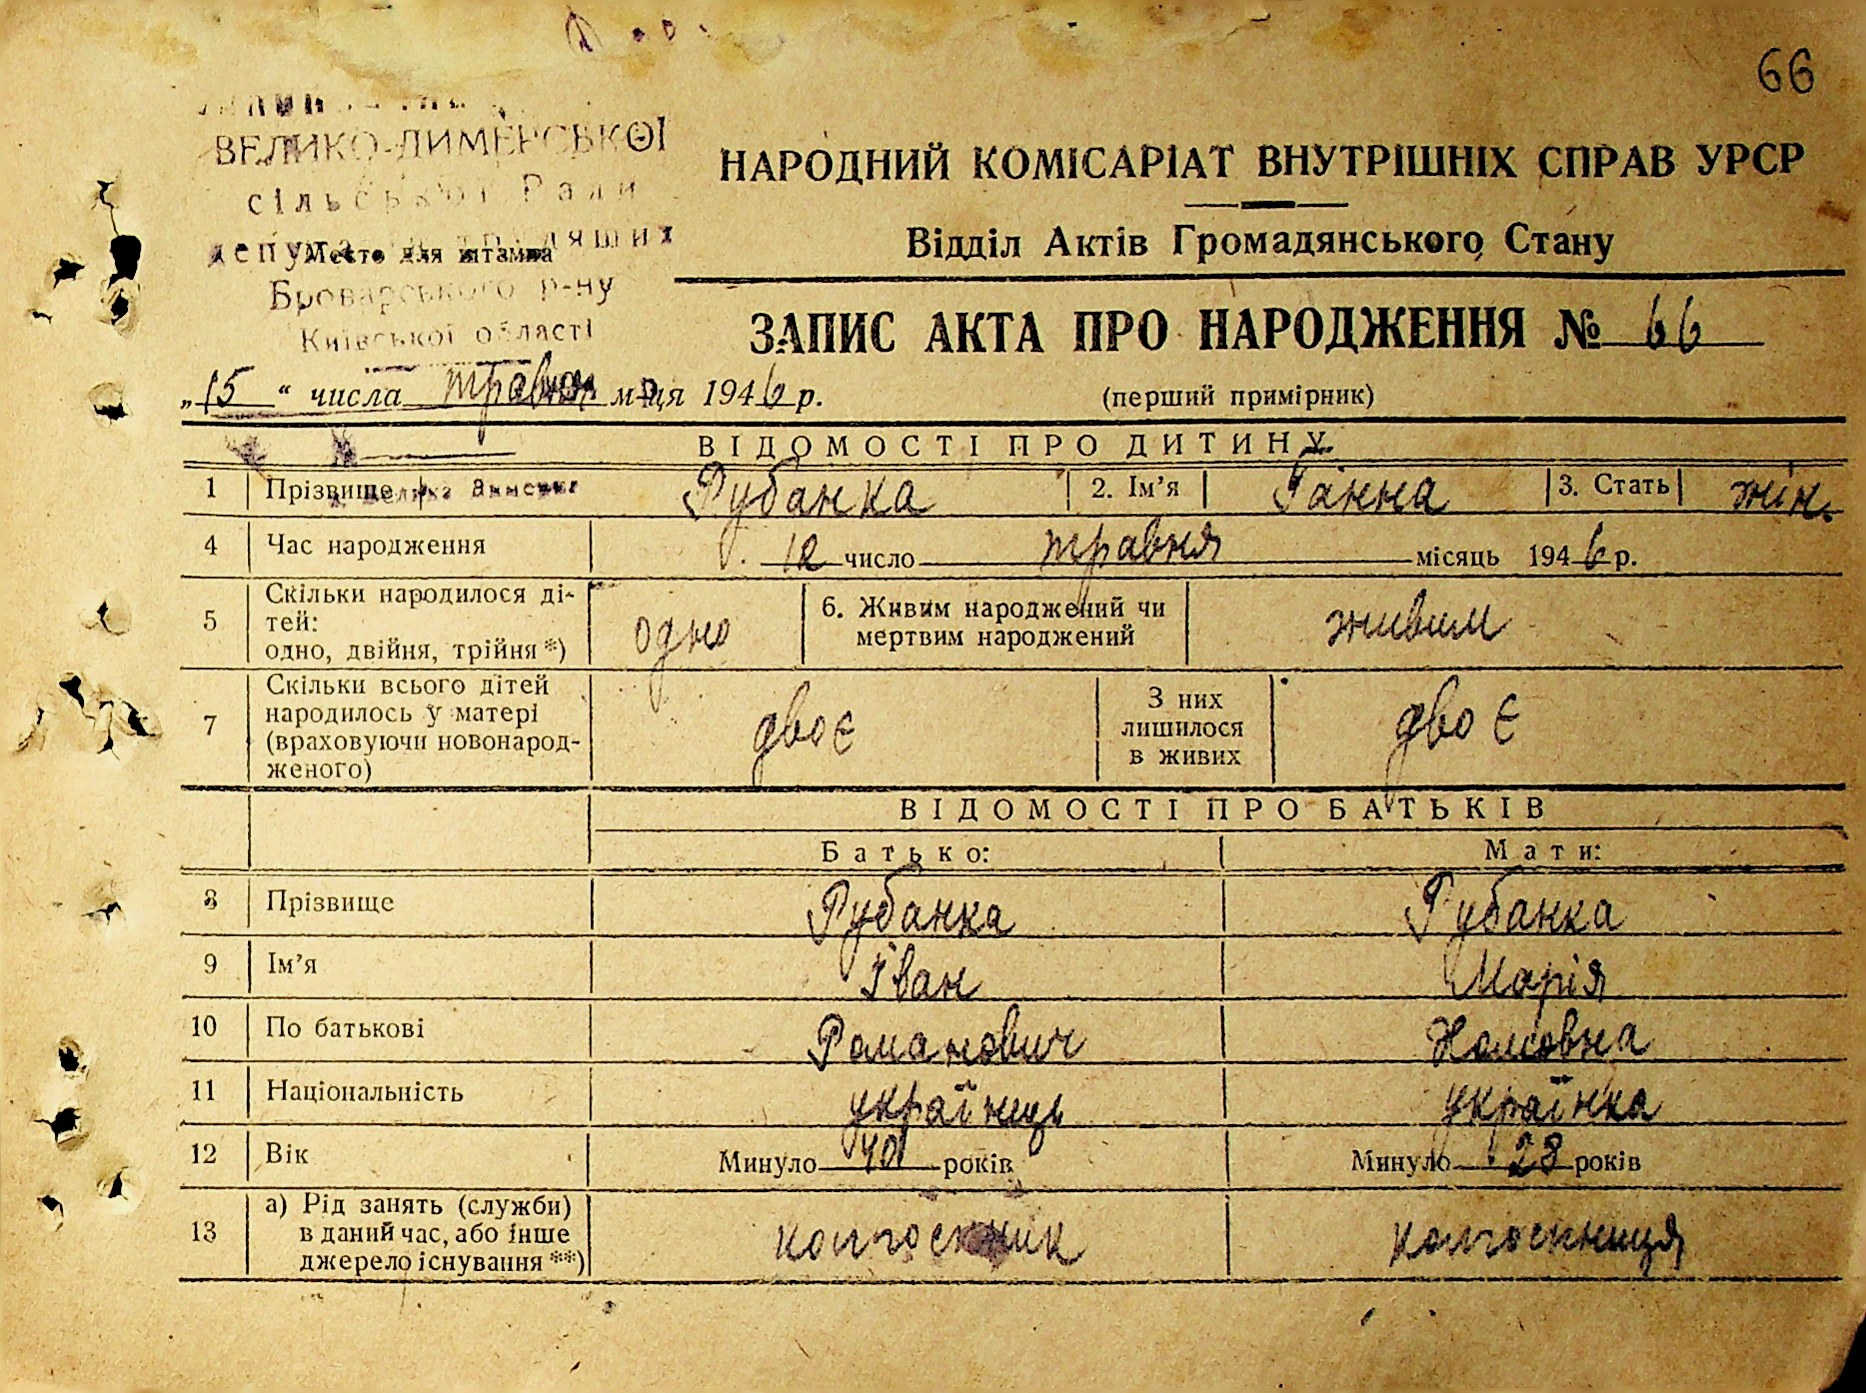 66
ВЕЛИКО-ДИМЕРСЬКОЇ
сільської Ради
депутатів трудящих
Место для штампа
Броварського р-ну
Київської області
НАРОДНИЙ КОМІСАРІАТ ВНУТРІШНІХ СПРАВ УРСР
Відділ Актів Громадянського Стану
ЗАПИС АКТА ПРО НАРОДЖЕННЯ № 66
„15“ числа травня м-ця 1946 р.
(перший примірник)
ВІДОМОСТІ ПРО ДИТИНУ
1 Прізвище Рубанка 2. Ім'я Ганна 3. Стать жін.
4 Час народження 12 число травня місяць 1946 р.
5 Скільки народилося ді-
тей:
одно, двійня, трійня*) одно
6. Живим народжений чи
мертвим народжений живим
7 Скільки всього дітей
народилось у матері
(враховуючи новонарод-
женого) двоє
З них
лишилося
в живих двоє
ВІДОМОСТІ ПРО БАТЬКІВ
Батько: Мати:
8 Прізвище Рубанка Рубанка
9 Ім'я Іван Марія
10 По батькові Романович
11 Національність українець українка
12 Вік Минуло 40 років Минуло 28 років
13 а) Рід занять (служби)
в даний час, або інше
джерело існування**) колгоспник колгоспниця